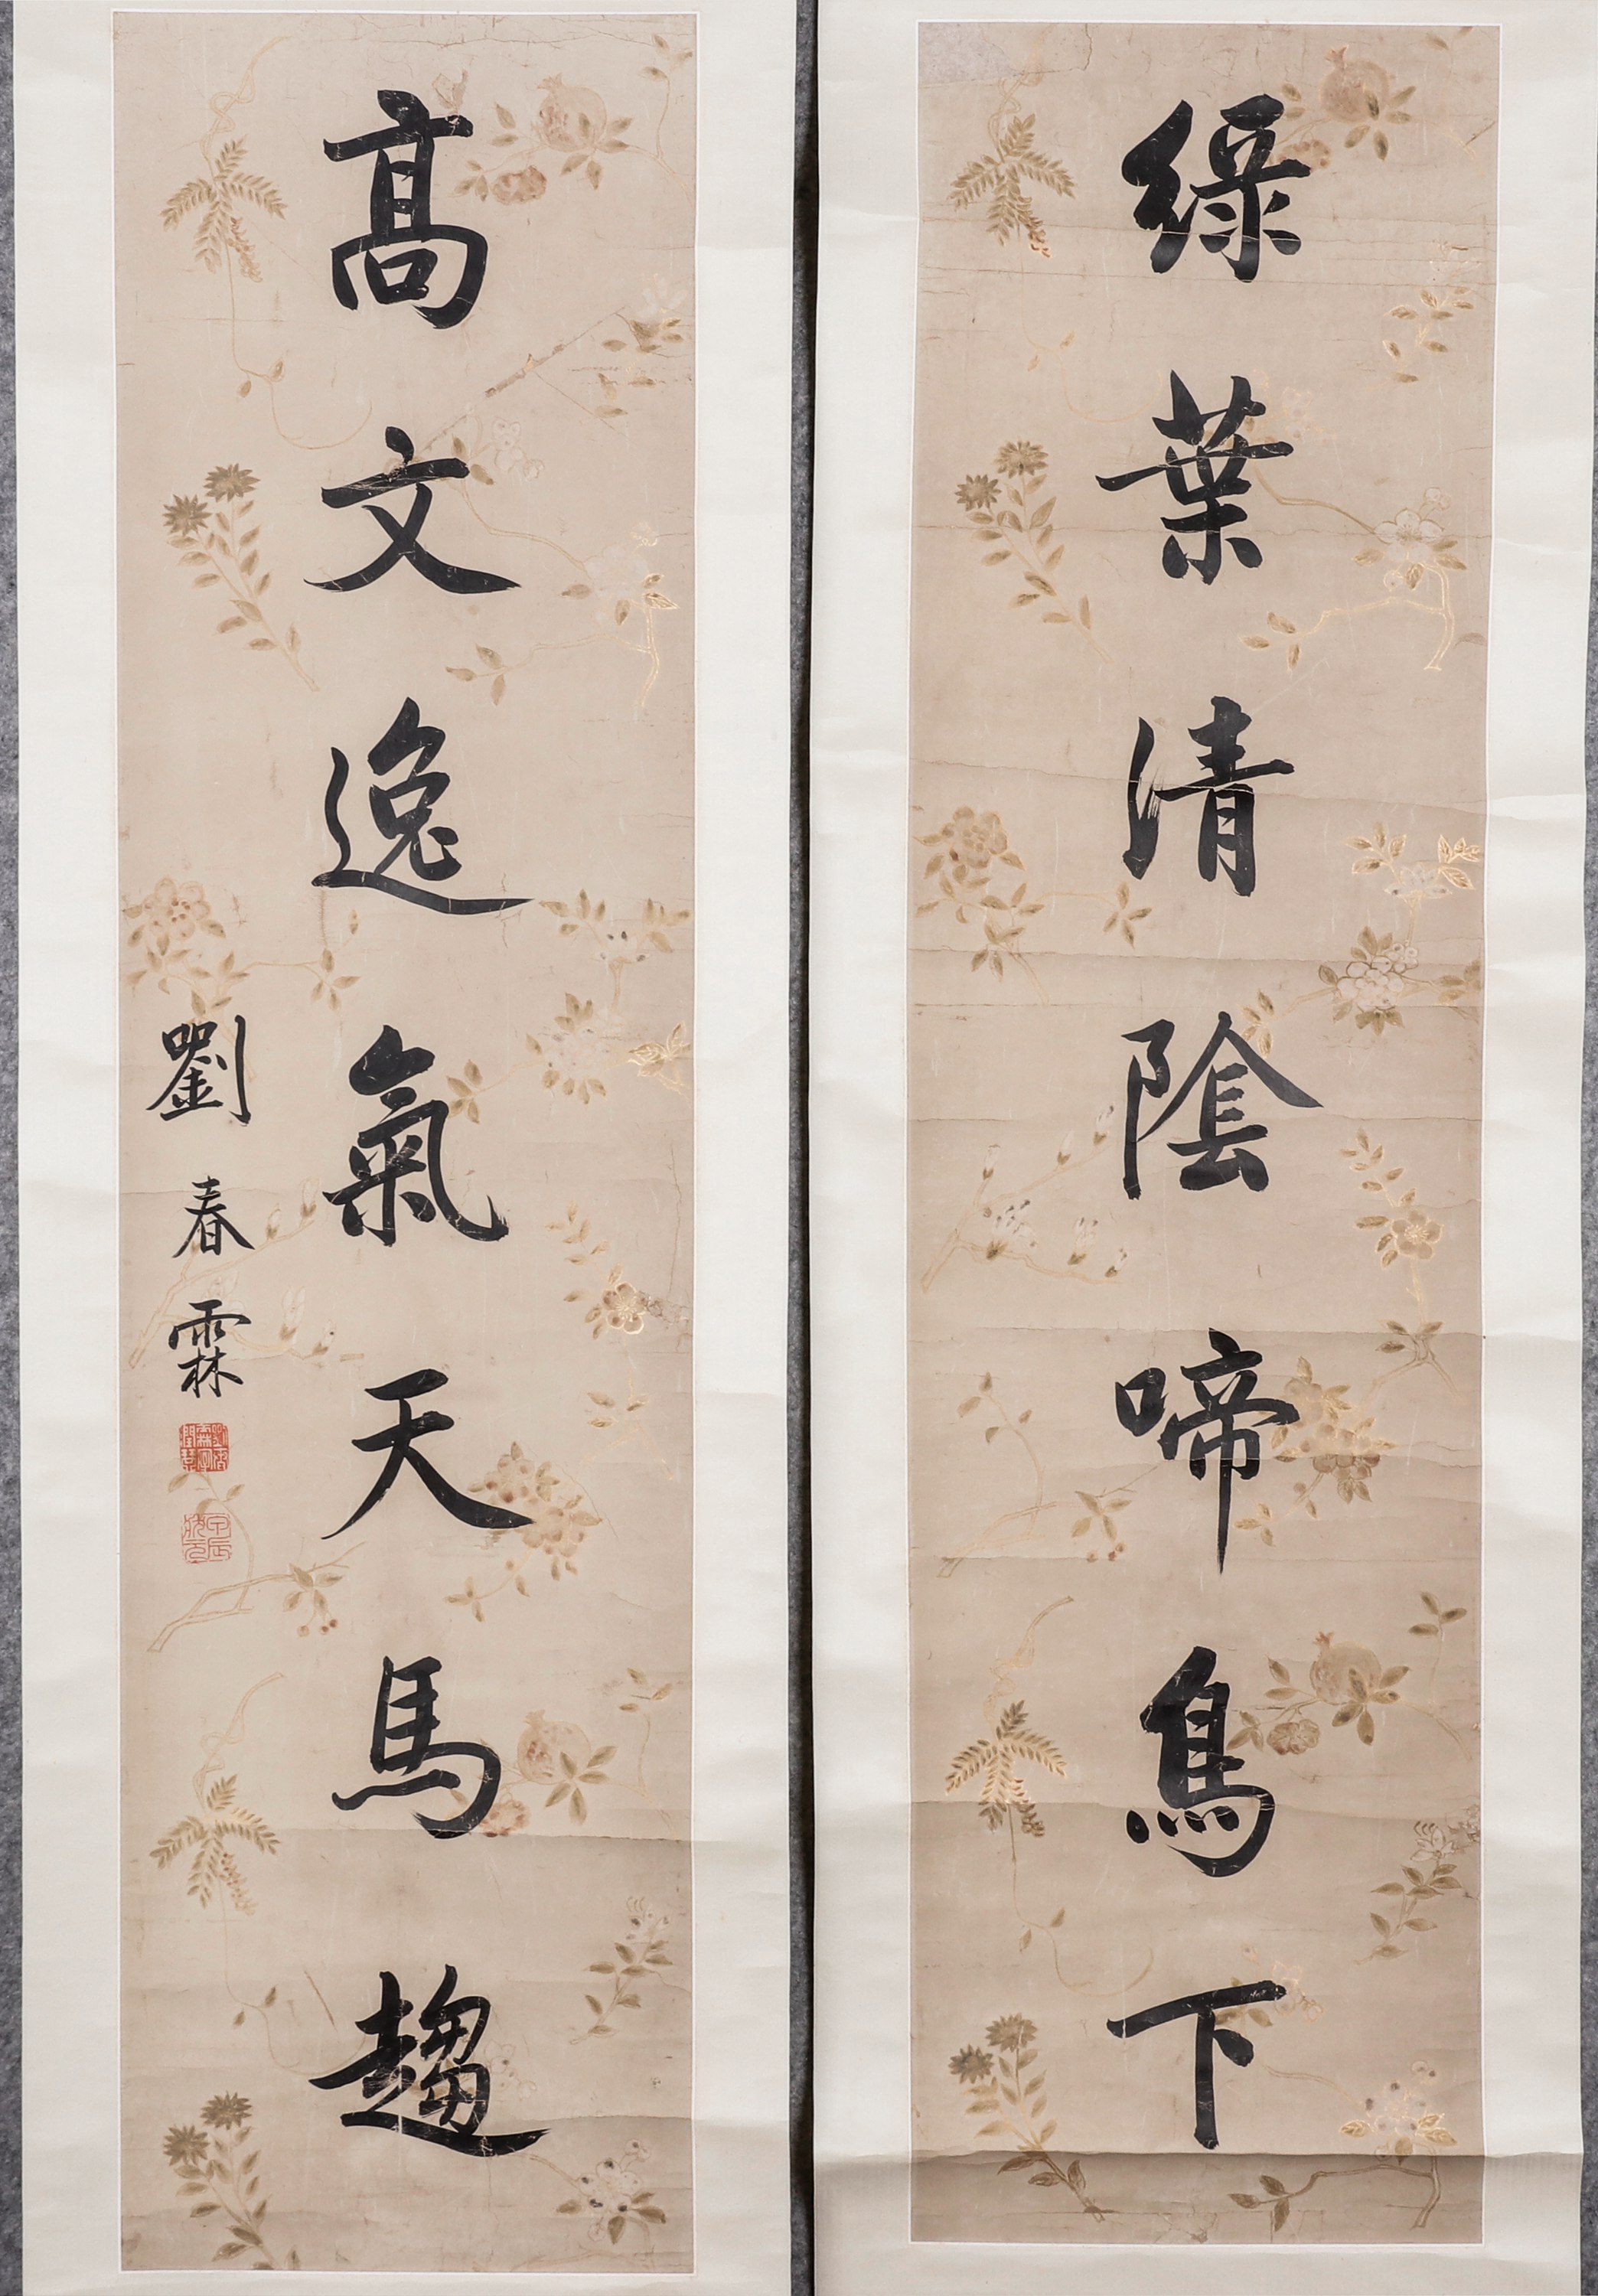 綠葉清陰啼鳥下
高文逸氣天馬趨
劉春霖
甲辰狀元